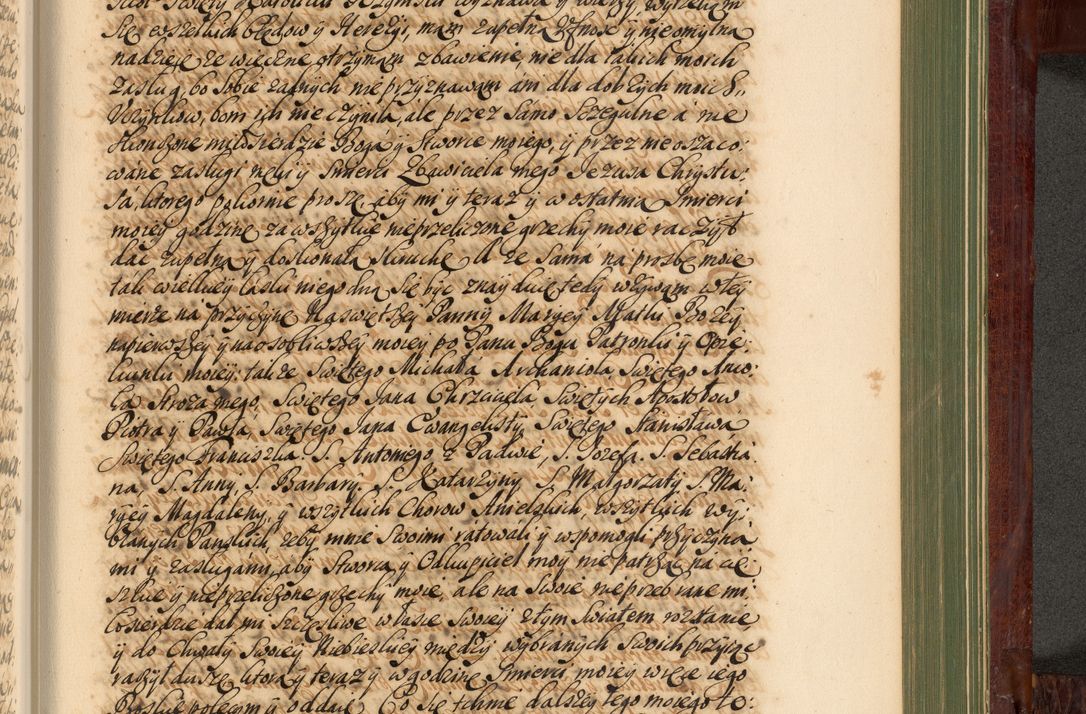 się wszelkich błędow y Herezyi, mam zupełną Ufność y nieomylną
nadzieię że wieczne otrzymam zbawienie, nie dla takich moich
zasług, bo sobie żadnych nie przyznawam ani dla dobrych moich
Uczynkow, bom ich nie czyniła, ale przez Samo Szczegulne a nie
skonczone miłosierdzie Boga y Stworce moiego, y przez nieoszaco-
wane zasługi męki y Smierci Zbawiciela mego Jezusa Chrystu:
sa, ktorego pokornie proszę, aby mi y teraz y w ostatnią Smierci
moiey godzinę za wszytkie nieprzeliczone grzechy moie raczył
dać zupełną y doskonałą skruchę A że Sama na prozbę moie
tak wielkiey łaski niegodną się być znayduię tedy wzywam w tey
mierze na przyczynę Nayswiętszey Panny Maryey Matki Bozey
napierwszey y naosobliwszey moiey po Panu Bogu Patronki y Opie:
kunki moiey: także Swiętego Michała Archanioła Swiętego Anio:
ła Stroza mego, Swiętego Jana Chrzciciela Swiętych Apostołow
Piotra y Pawła, Swiętego Jana Ewangelisty, Swiętego Stanisława
Swiętego Franciszka. S. Antoniego z Padwie, S. Jozefa. S. Sebastia
na, S. Anny, S. Barbary. S. Katarzyny, S. Małgorzaty S. Ma:
ryey Magdaleny, y wszytkich Chorow Anielskich, wszytkich wy:
branych Panskich, zeby mnie Swoimi ratowali y wspomogli przyczyna
mi y zasługami, aby Stworca y Odkupiciel moy nie patrząc na cię
szkie y nieprzeliczone grzechy moie, ale na Swoie nieprzebrane mi:
łosierdzie dał mi szczęśliwe w łasce Swoiey z tym Swiatem rozstanie
y do Chwały Swoiey Niebieskiey między wybranych Swoich przyiąć
raczył duszę, ktorą y teraz y w godzinę Smierci moiey w ręce iego
Boskie polecam y oddaię. Co się tchnie dalszey tego moiego te: